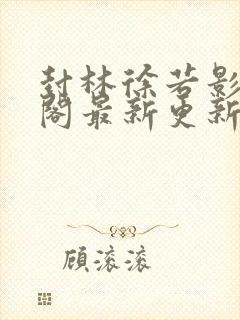 封林徐若影
阁最新更新
顾滚滚